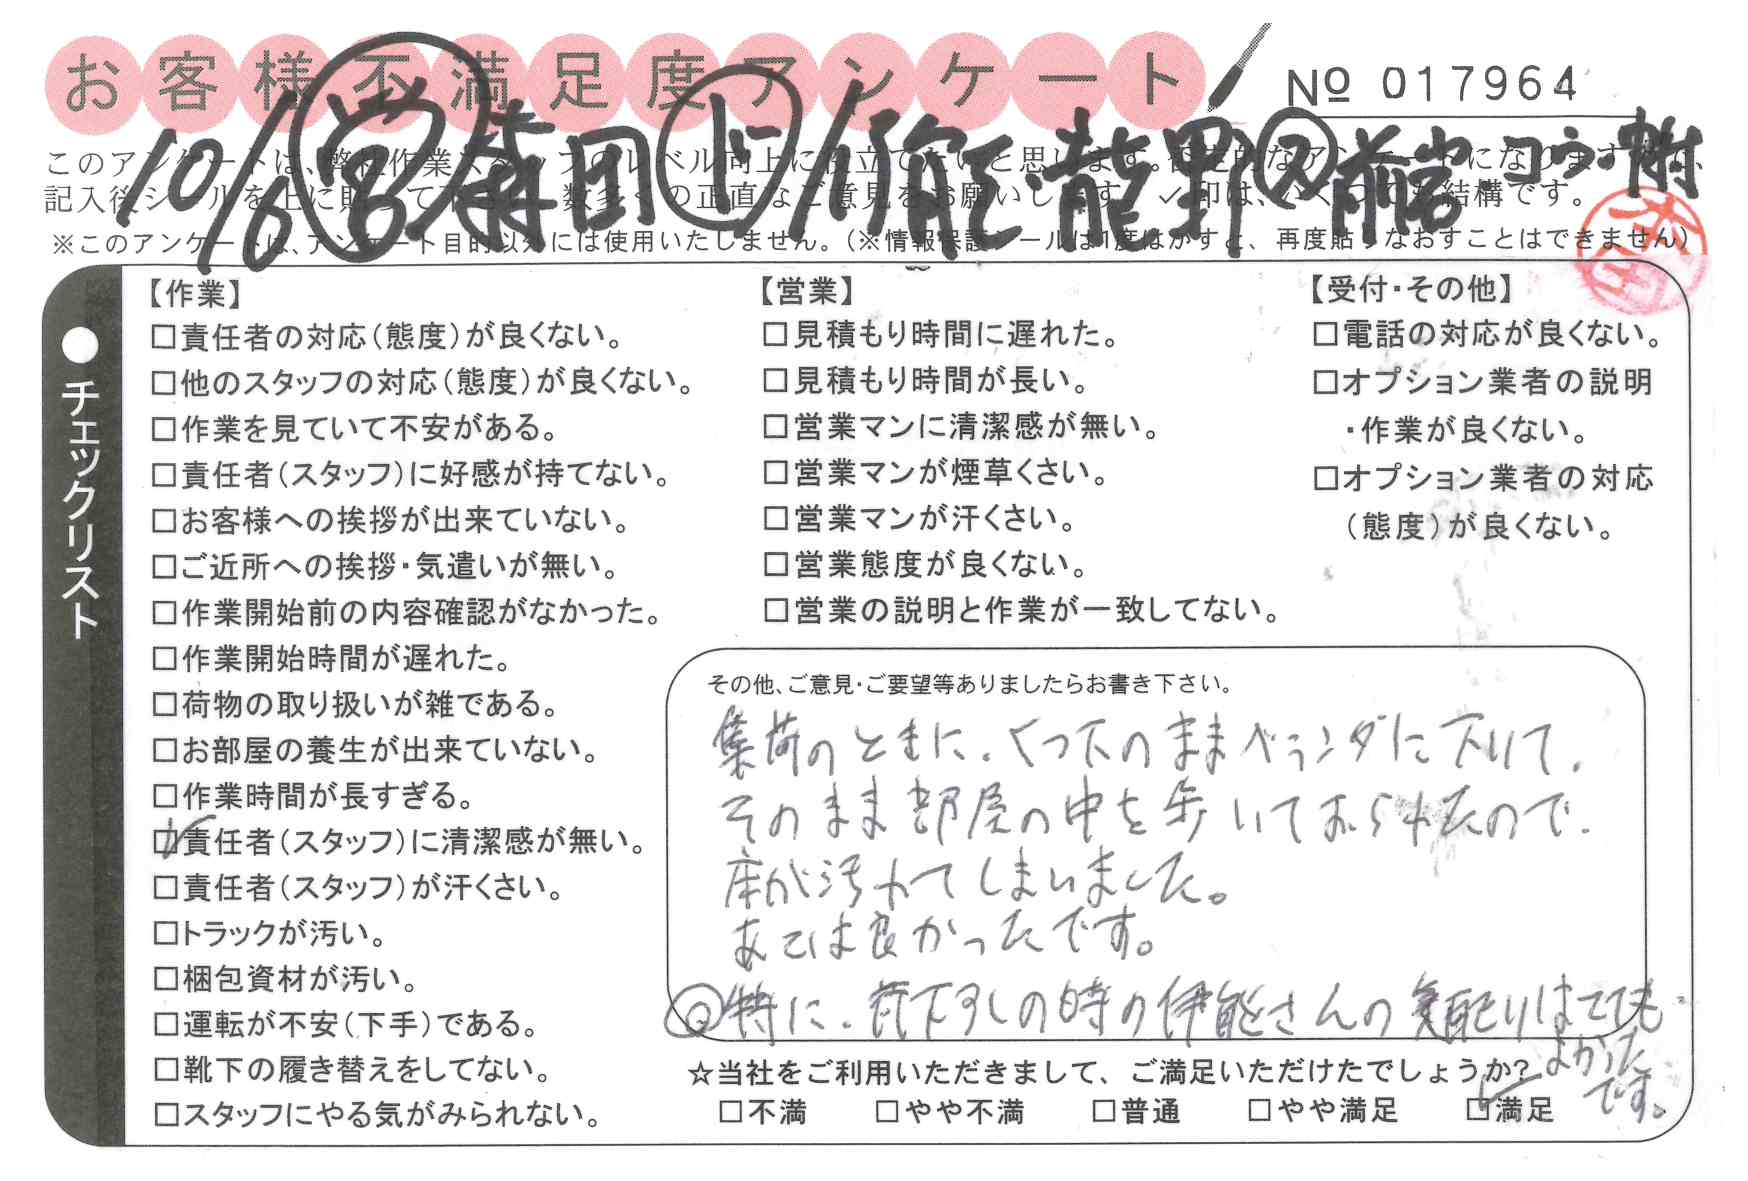 お客様不満足度アンケート
№ 017964
10/6 宮 森田 ド 伊能・龍野 ス 前岩 コウ・中村
このアンケートは、弊社作業スタッフのレベル向上に役立てたいと思います。否定的なアンケートになりますが、
記入後シールを上に貼って下さい。数多くの正直なご意見をお願いします。✓印は、いくつでも結構です。
※このアンケートは、アンケート目的以外には使用いたしません。(※情報保護シールは1度はがすと、再度貼りなおすことはできません)
●チェックリスト
【作業】
□責任者の対応(態度)が良くない。
□他のスタッフの対応(態度)が良くない。
□作業を見ていて不安がある。
□責任者(スタッフ)に好感が持てない。
□お客様への挨拶が出来ていない。
□ご近所への挨拶・気遣いが無い。
□作業開始前の内容確認がなかった。
□作業開始時間が遅れた。
□荷物の取り扱いが雑である。
□お部屋の養生が出来ていない。
□作業時間が長すぎる。
☑責任者(スタッフ)に清潔感が無い。
□責任者(スタッフ)が汗くさい。
□トラックが汚い。
□梱包資材が汚い。
□運転が不安(下手)である。
□靴下の履き替えをしてない。
□スタッフにやる気がみられない。
【営業】
□見積もり時間に遅れた。
□見積もり時間が長い。
□営業マンに清潔感が無い。
□営業マンが煙草くさい。
□営業マンが汗くさい。
□営業態度が良くない。
□営業の説明と作業が一致してない。
【受付・その他】
□電話の対応が良くない。
□オプション業者の説明
・作業が良くない。
□オプション業者の対応
(態度)が良くない。
その他、ご意見・ご要望等ありましたらお書き下さい。
集荷のときに、くつ下のままベランダに下りて、
そのまま部屋の中を歩いておられたので、
床が汚れてしまいました。
あとは良かったです。
◎特に、荷下ろしの時の伊能さんの気配りはとても
よかった
です。
☆当社をご利用いただきまして、ご満足いただけたでしょうか?
□不満 □やや不満 □普通 □やや満足 ☑満足